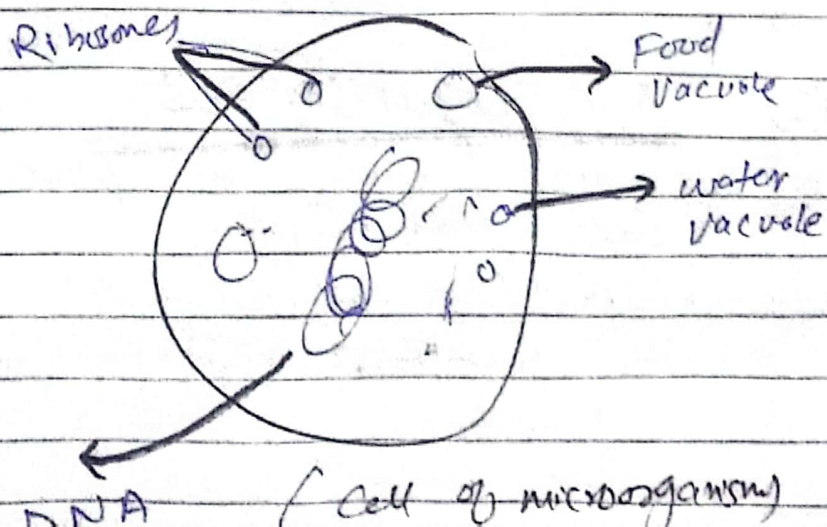 Ribosomes
Food
vacuole
water
vacuole
DNA
(Cell of microorganism)